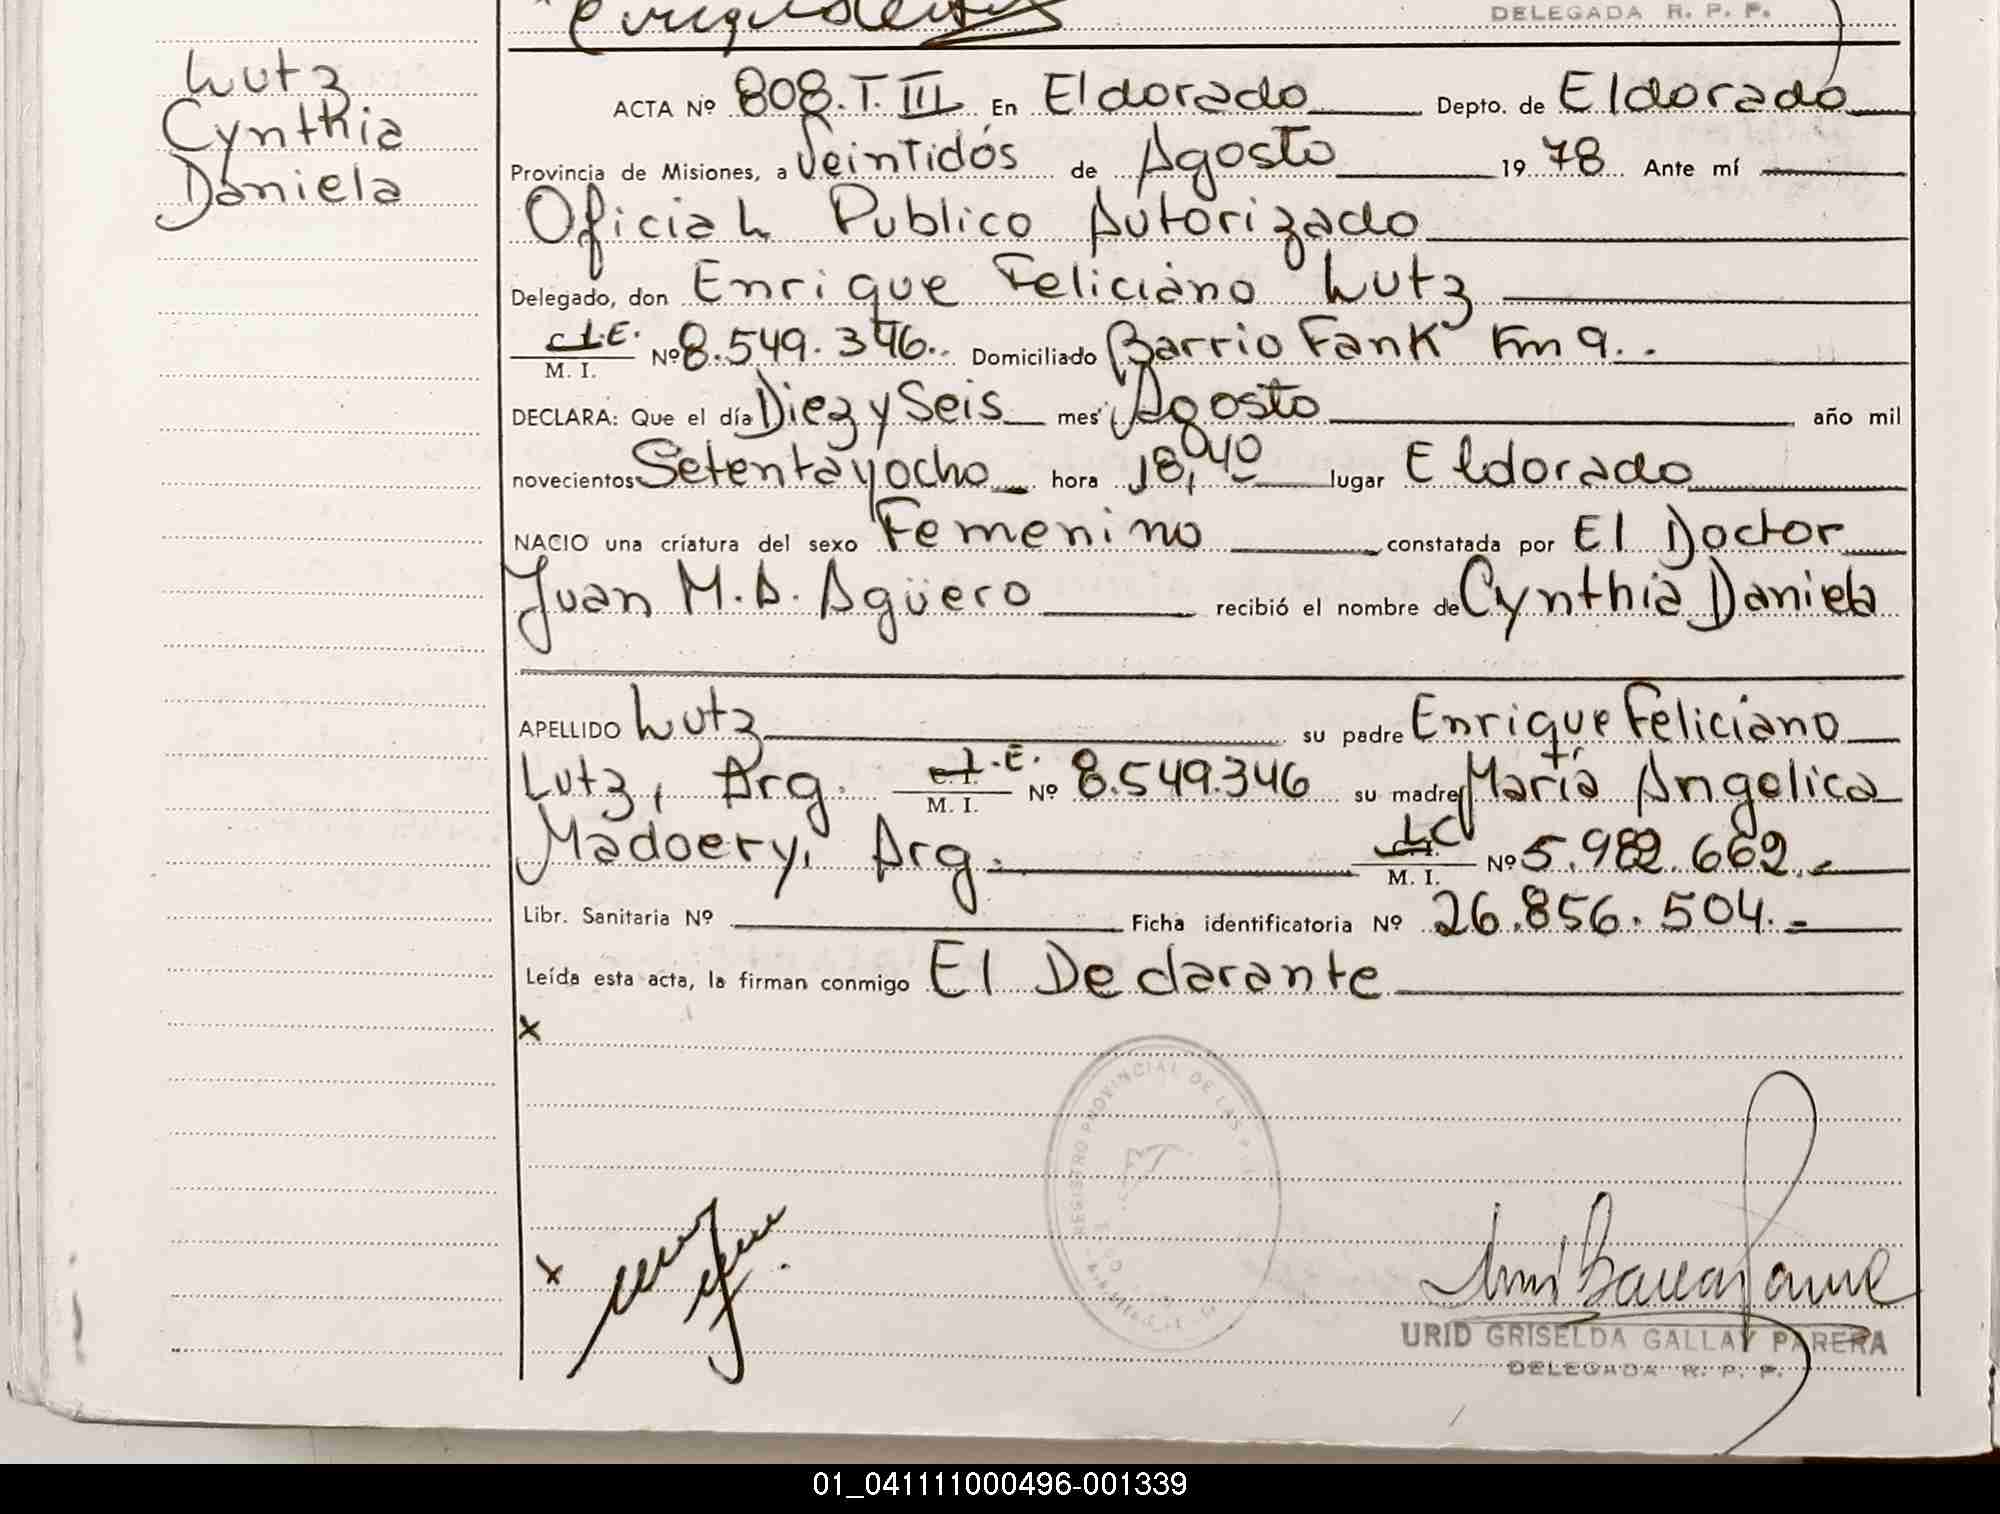 DELEGADA R. P. P.
Lutz
Cynthia
Daniela
ACTA Nº 808.T.III En Eldorado Depto. de Eldorado
Provincia de Misiones, a Veintidós de Agosto 1978 Ante mí
Oficial Publico Autorizado
Delegado, don Enrique Feliciano Lutz
L.E.
M. I. Nº 8.549.346. Domiciliado Barrio Fank Km 9..
DECLARA: Que el día Diez y Seis mes Agosto año mil
novecientos Setentayocho hora 18,40 lugar Eldorado
NACIO una criatura del sexo Femenino constatada por El Doctor
Juan M.A. Agüero recibió el nombre de Cynthia Daniela
APELLIDO Lutz su padre Enrique Feliciano
Lutz, Arg. L.E. M. I. Nº 8.549.346 su madre María Angelica
Madoery, Arg. L.C. M. I. Nº 5.982.662.-
Libr. Sanitaria Nº Ficha identificatoria Nº 26.856.504.-
Leída esta acta, la firman conmigo El Declarante
x
REGISTRO PROVINCIAL DE LAS
x
URID GRISELDA GALLAY PARERA
DELEGADA R. P. P.
01_041111000496-001339